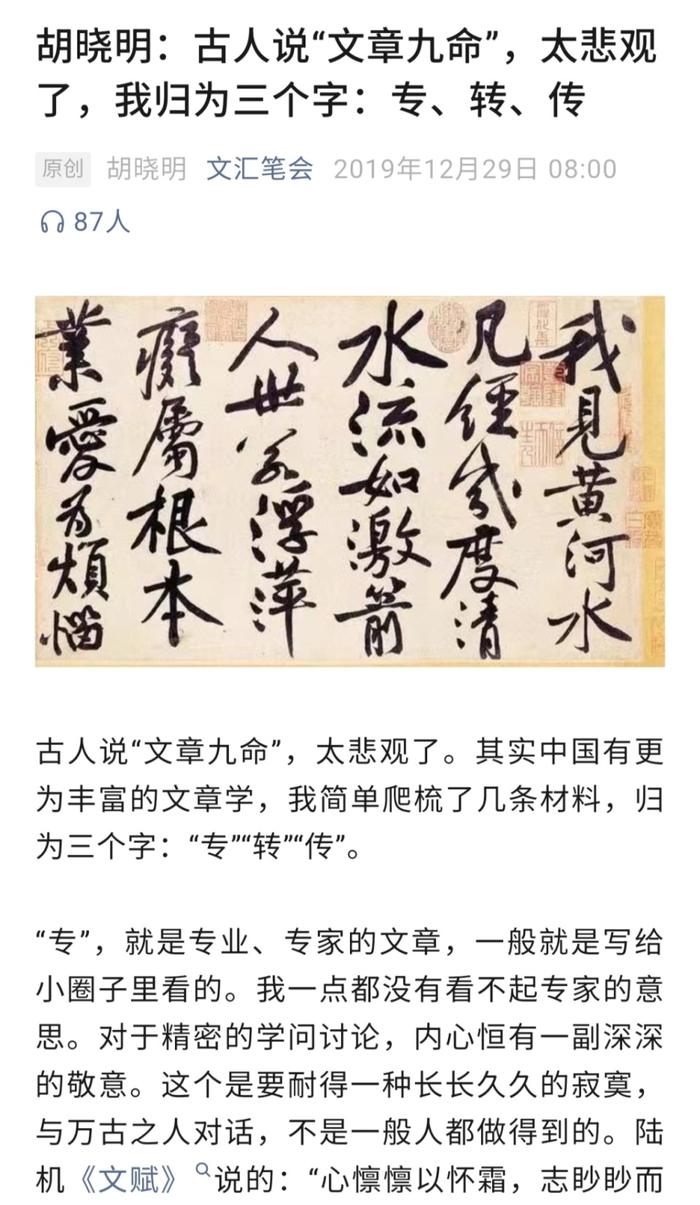 胡晓明：古人说“文章九命”，太悲观
了，我归为三个字：专、转、传
原创 胡晓明 文汇笔会 2019年12月29日 08:00
87人
我見黄河水
凡經幾度清
水流如激箭
人世若浮萍
癡屬根本
業愛為煩惱
古人说“文章九命”，太悲观了。其实中国有更
为丰富的文章学，我简单爬梳了几条材料，归
为三个字：“专”“转”“传”。
“专”，就是专业、专家的文章，一般就是写给
小圈子里看的。我一点都没有看不起专家的意
思。对于精密的学问讨论，内心恒有一副深深
的敬意。这个是要耐得一种长长久久的寂寞，
与万古之人对话，不是一般人都做得到的。陆
机《文赋》说的：“心懔懔以怀霜，志眇眇而